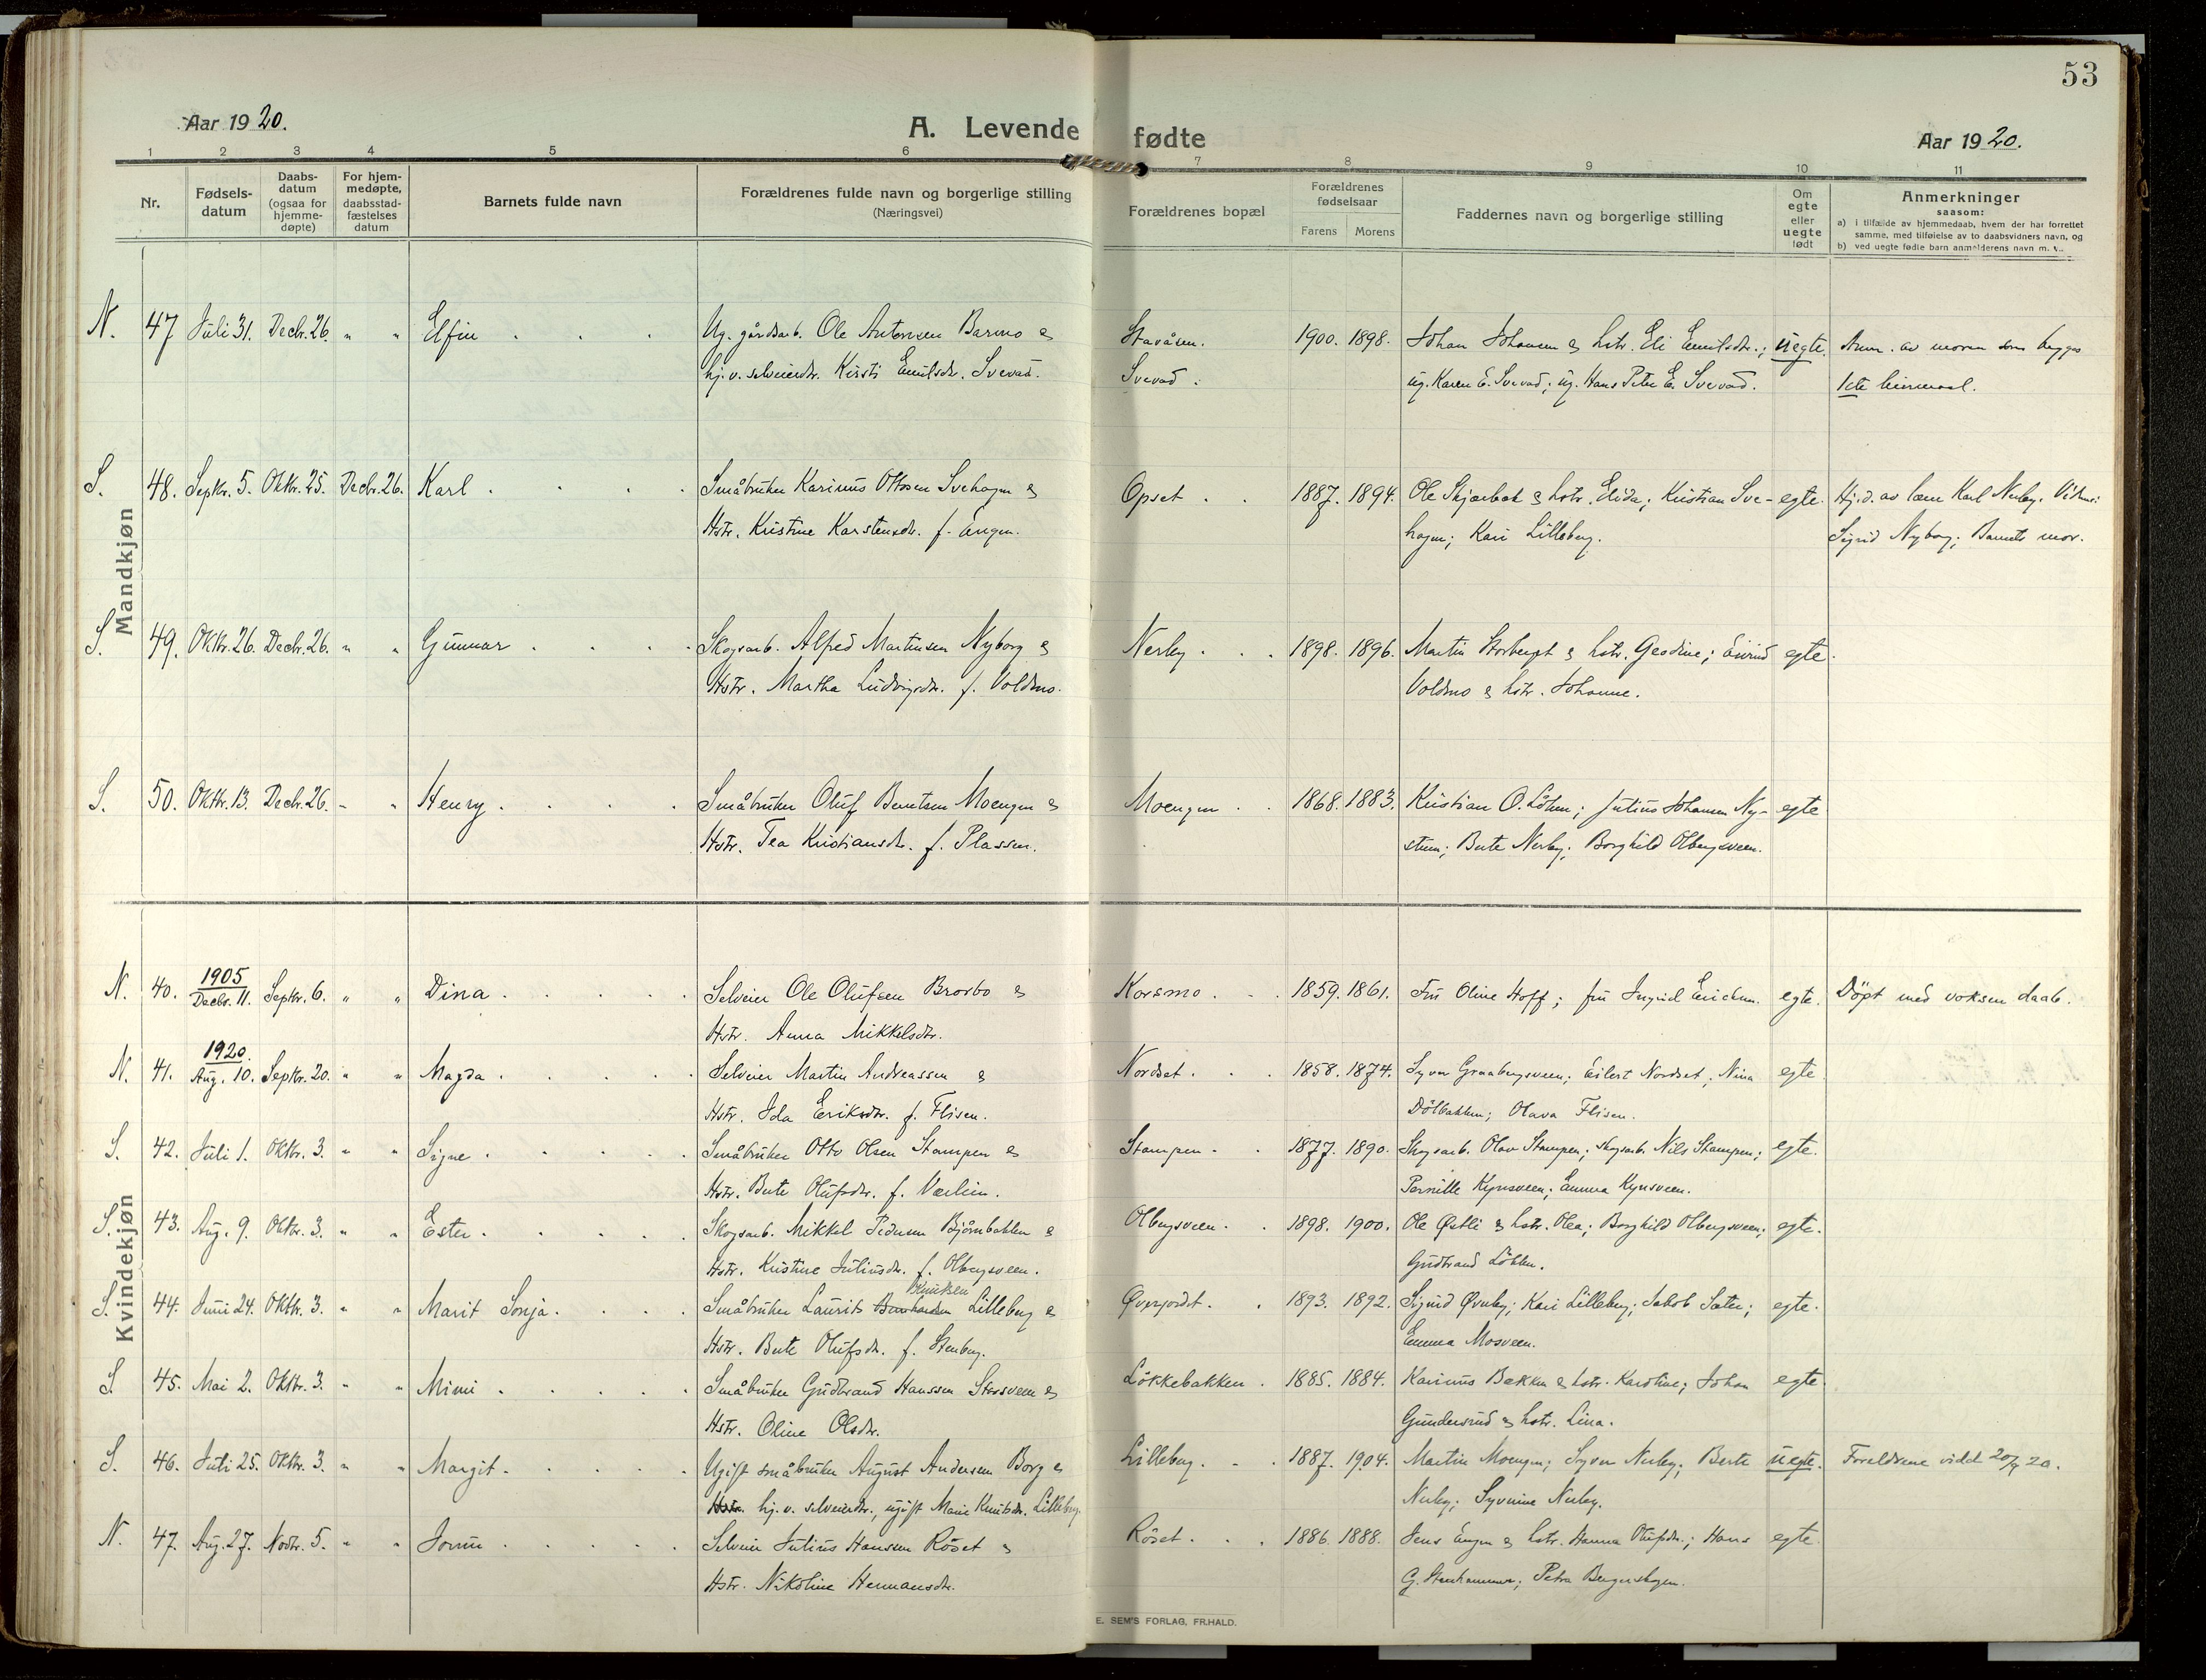 53
Aar 1920.
A. Levende fødte
Aar 1920.
1 2 3 4 5 6 7 8 9 10 11
Nr.
Fødsels-
datum
Daabs-
datum
(ogsaa for
hjemme-
døpte)
For hjem-
medøpte,
daabsstad-
fæstelses
datum
Barnets fulde navn
Forældrenes fulde navn og borgerlige stilling
(Næringsvei)
Forældrenes bopæl
Forældrenes
fødselsaar
Farens Morens
Faddernes navn og borgerlige stilling
Om
egte
eller
uegte
født
Anmerkninger
saasom:
a) i tilfælde av hjemmedaab, hvem der har forrettet
samme, med tilføielse av to daabsvidners navn, og
b) ved uegte fødte barn anmelderens navn m. v.
Mandkjøn
N. 47 Juli 31. Decbr. 26. " " Elfin . . . Ug. gårdsarb. Ole Antonsen Barmo & Stavåsen. 1900. 1898. Johan Johansen & hstr. Eli Emilsdtr.; uegte. Anm. av moren som begges
hj. v. selveierdtr. Kirsti Emilsdtr. Svevad. Svevad. ug. Karen E. Svevad; ug. Hans Peter E. Svevad. 1ste leiermaal.
S. 48. Septbr. 5. Oktbr. 25. Decbr. 26. Karl . . . . Småbruker Karinus Ottosen Svehagen & Opset . . 1887. 1894. Ole Skjærbæk & hstr. Elida; Kristian Sve- egte. Hj.d. av lærer Karl Nerby. Vidner:
Hstr. Kristine Karstensdtr. f. Engen. hagen; Kari Lilleberg. Sigrid Nyborg; Barnets mor.
S. 49. Oktbr. 26. Decbr. 26. " " Gunnar . . . . Skogsarb. Alfred Martinsen Nyborg & Nerby . . . 1898. 1896. Martin Storbergt & hstr. Gesdine; Eivind egte.
Hstr. Martha Ludvigsdtr. f. Voldmo. Voldmo & hstr. Johanne.
S. 50. Oktbr. 13. Decbr. 26. " " Henry . . . . Småbruker Oluf Berntsen Moengen & Moengen . . 1868. 1883. Kristian O. Löken; Julius Johansen Ny- egte
Hstr. Tea Kristiansdtr. f. Plassen. stuen; Berte Nerby; Borghild Olbergsveen.
Kvindekjøn
1905
N. 40. Decbr. 11. Septbr. 6. " " Dina . . . . . Selveier Ole Olufsen Brorbo & Korsmo . . . 1859. 1861. Fru Oline Hoff; fru Ingrid Ericksen. egte. Döpt med voksen daab.
Hstr. Anna Mikkelsdtr.
1920.
N. 41. Aug. 10. Septbr. 20. " " Magda . . . . . Selveier Martin Andreassen & Nordset . . . 1858. 1874. Syver Graabergsveen; Eilert Nordset; Nina egte
Hstr. Ida Eriksdtr. f. Flisen. Dölbakken; Olava Flisen.
S. 42. Juli 1. Oktbr. 3. " " Signe . . . . . Småbruker Otto Olsen Stampen & Stampen . . 1877. 1890. Skogsarb. Olav Stampen; skogsarb. Nils Stampen; egte.
Hstr. Berte Olufsdtr. f. Værlien. Pernille Kynsveen; Emma Kynsveen.
S. 43. Aug. 9. Oktbr. 3. " " Ester . . . . . Skogsarb. Mikkel Pedersen Björnbakken & Olbergsveen . . 1898. 1900. Ole Østli & hstr. Olea; Borghild Olbergsveen; egte.
Hstr. Kristine Juliusdtr. f. Olbergsveen. Gudbrand Lökken.
S. 44. Juni 24. Oktbr. 3. " " Marit Sonja . . . . Småbruker Laurits Lilleberg & Øvergordet . . 1893. 1892. Sigurd Øverby; Kari Lilleberg; Jakob Sæter; egte.
Hstr. Berte Olufsdtr. f. Stenberg. Emma Mosveen.
S. 45. Mai 2. Oktbr. 3. " " Mimi . . . . . Småbruker Gudbrand Hanssen Storsveen & Lökkebakken . 1885. 1884. Karinus Bækken & hstr. Karoline; Johan egte.
Hstr. Oline Olsdtr. Gundersrud & hstr. Lina.
S. 46. Juli 25. Oktbr. 3. " " Margit . . . . . Ugift småbruker August Andersen Borg & Lilleberg . . . 1887. 1904. Martin Moengen; Syver Nerby; Berte uegte. Foreldrene viet 20/9 20.
Hstr. hj. v. selveierdtr., ugift Marie Knutsdtr. Lilleberg. Nerby; Syverine Nerby.
N. 47. Aug. 27. Novbr. 5. " " Jorun . . . . . Selveier Julius Hansen Röset & Röset . . . 1886. 1888. Jens Engen & hstr. Hanna Olufsdtr.; Hans egte
Hstr. Nikoline Hermansdtr. G. Stenhammer; Petra Bergershagen.
E. SEM'S FORLAG, FR.HALD.